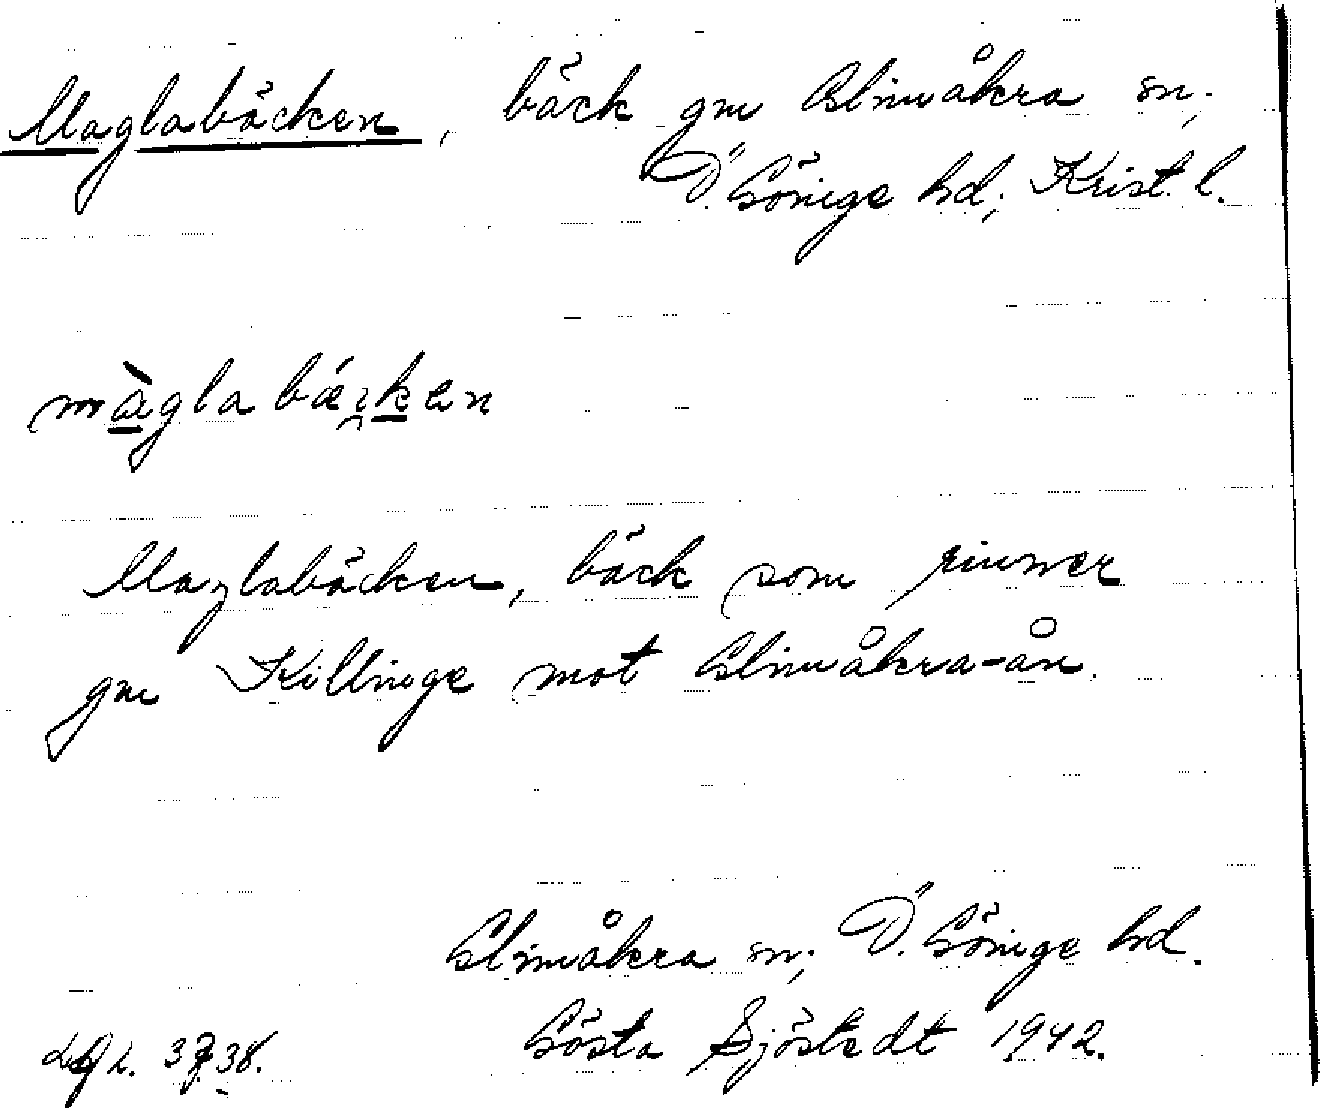 Maglabäcken, bäck gm Glimåkra sn;
Ö. Göinge hd; Krist. l.
màglabáken
Maglabäcken, bäck som rinner
gm Killinge mot Glimåkra-ån.
Glimåkra sn; Ö. Göinge hd.
Gösta Sjöstedt 1942.